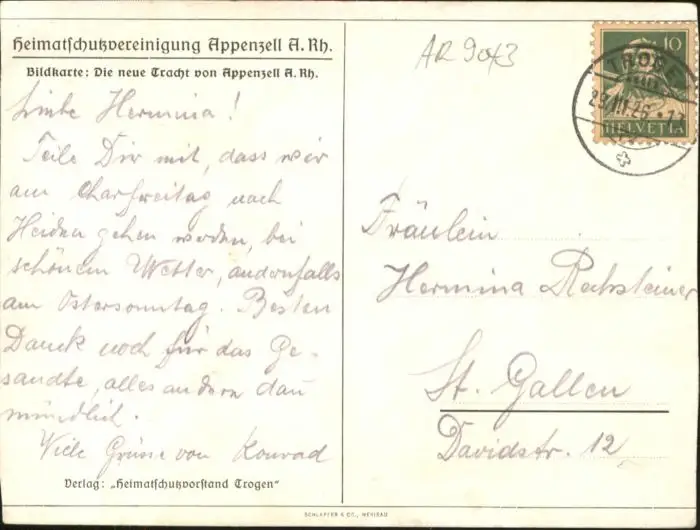 Heimatschutzvereinigung Appenzell A. Rh.
Bildkarte: Die neue Tracht von Appenzell A. Rh.
Liebe Hermina!
Teile Dir mit, dass wir
am Charfreitag nach
Heiden gehen werden, bei
schönem Wetter, andernfalls
am Ostersonntag. Besten
Danck noch für das Ge-
sandte, alles andere dan
mündlich.
Viele Grüsse von Konrad
Verlag: „Heimatschutzvorstand Trogen"
AR 9043
10
HELVETIA
TROGEN
29.III.26
Fräulein
Hermina Rechsteiner
St. Gallen
Davidstr. 12
SCHLÄPFER & CO., HERISAU